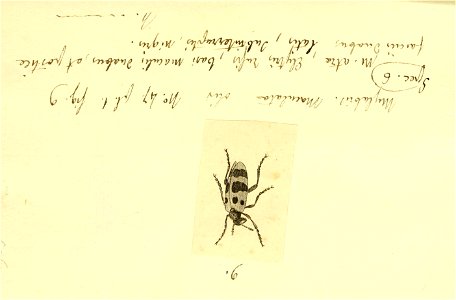 9.
Mylabris. Maculata oliv No. 47 pl. 1. fig. 9
Spec. 6 M. atra, Elytris rufis, basi maculis duabus, at postice
fasciis duabus latis, subinterruptis, nigris.